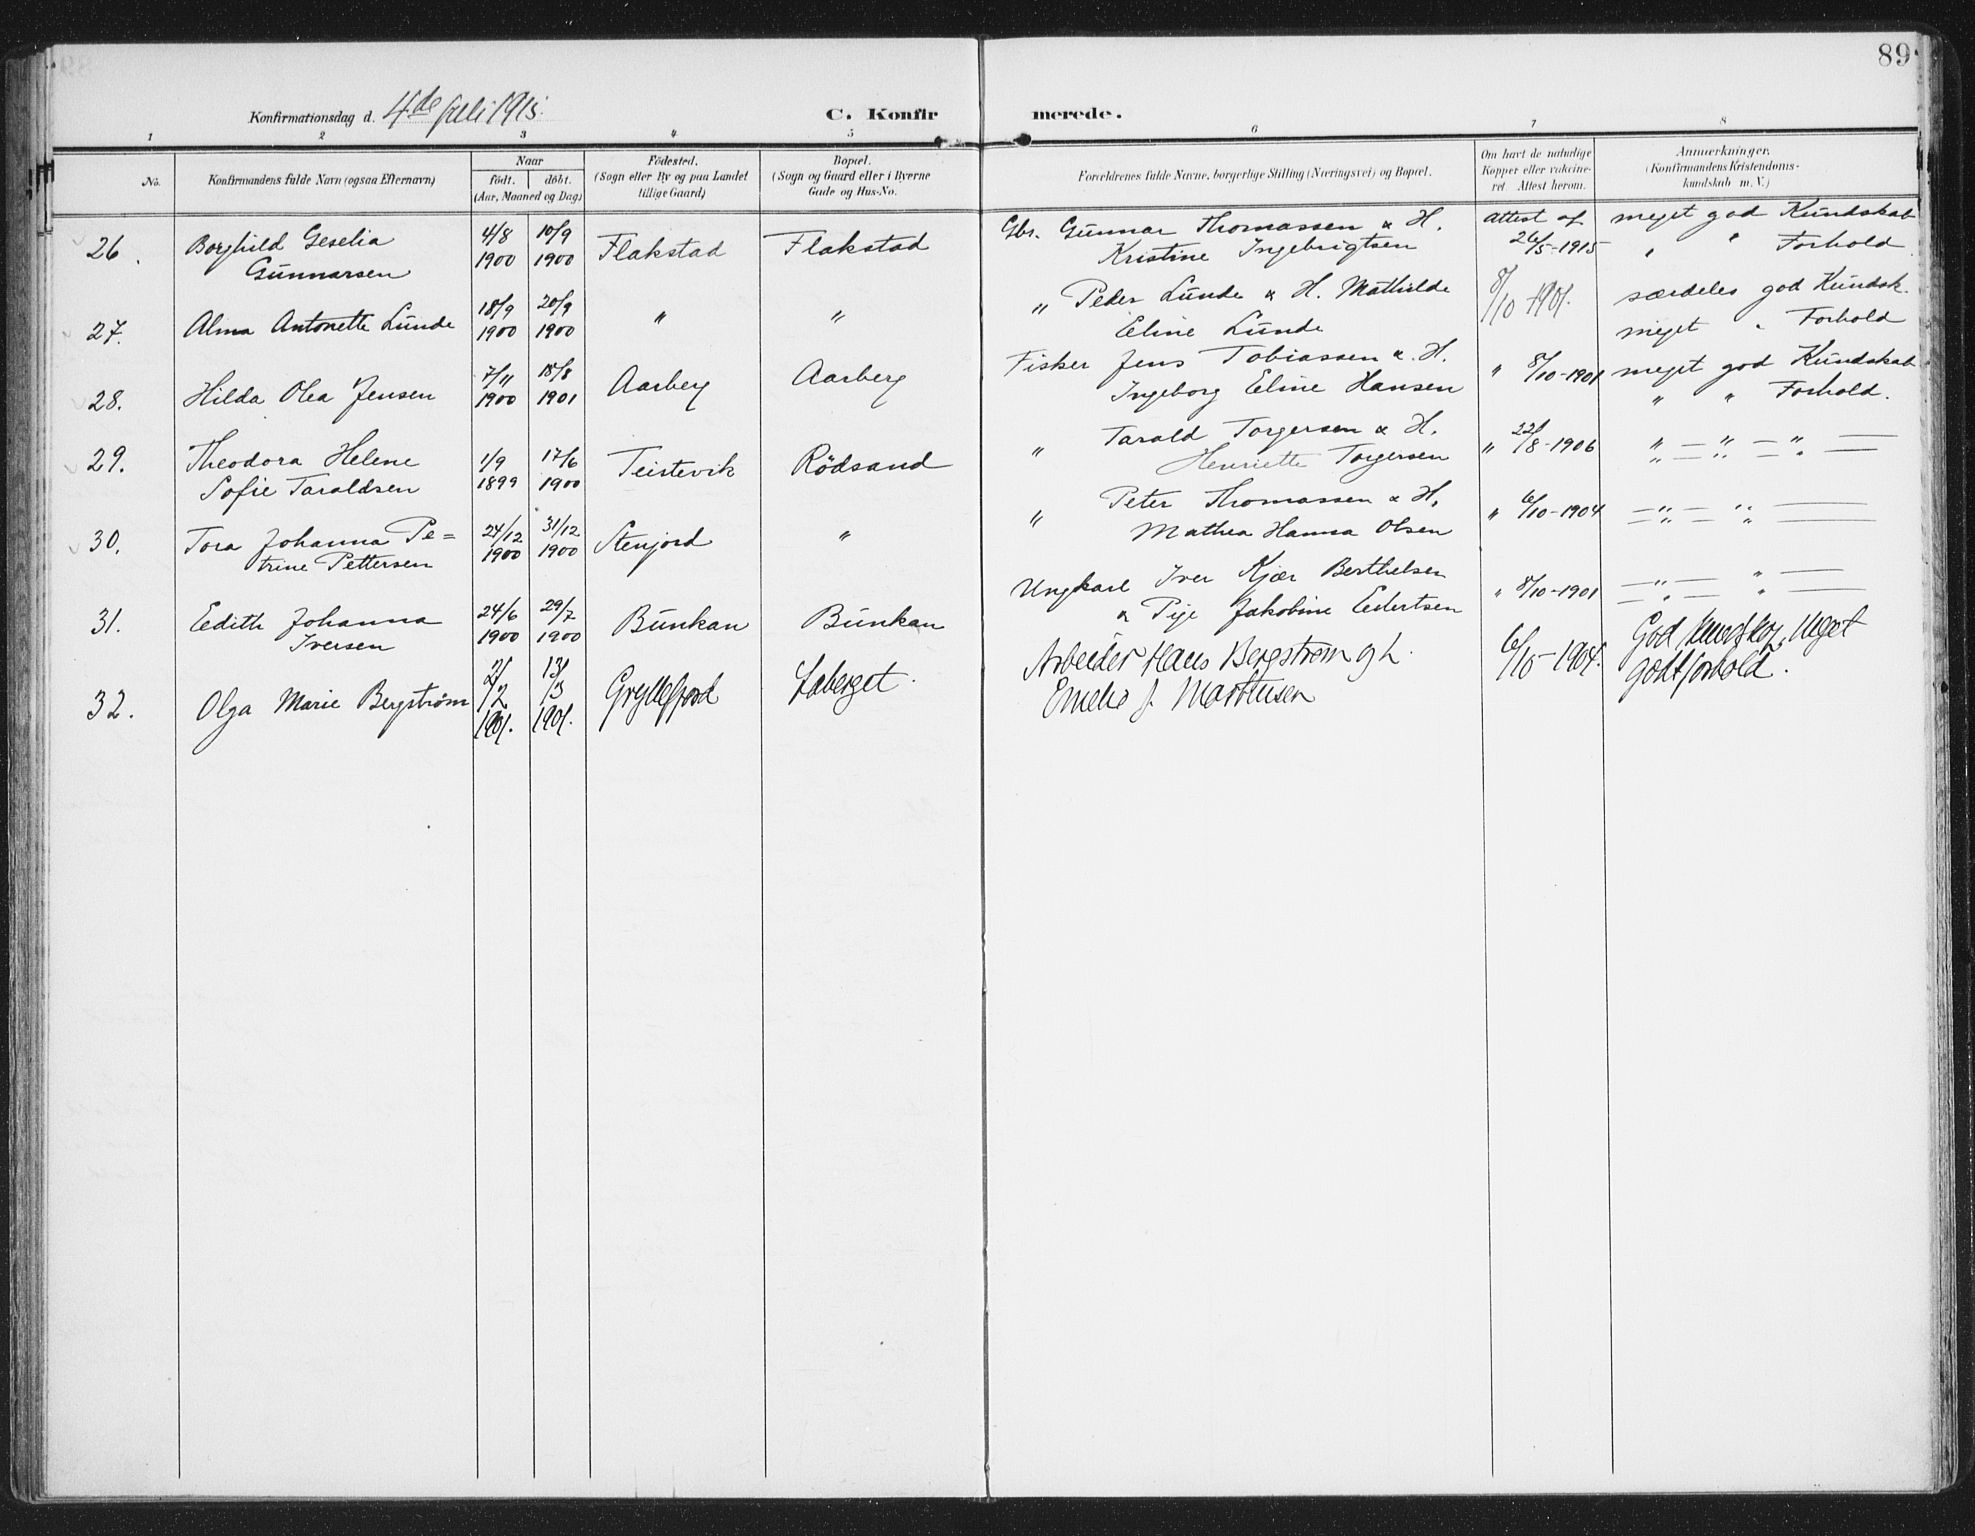 89
Konfirmationsdag d. 4de juli 1915.
C. Konfirmerede.
1 2 3 4 5 6 7 8
No.
Konfirmandens fulde Navn (ogsaa Efternavn)
Naar
født. døbt.
(Aar, Maaned og Dag)
Fødested.
(Sogn eller By og paa Landet
tillige Gaard)
Bopæl.
(Sogn og Gaard eller i Byerne
Gade og Hus-No.
Forældrenes fulde Navne, borgerlige Stilling (Næringsvei) og Bopæl.
Om havt de naturlige
Kopper eller vakcine-
ret. Attest herom.
Anmærkninger.
(Konfirmandens Kristendoms-
kundskab m. V.)
26. Borghild Geselia 4/8 10/9 Flakstad Flakstad Gbr. Gunnar Thomassen & H. Attest af meget god Kundskab
Gunnarsen 1900 1900 Kristine Ingebrigtsen 26/5-1915 " " Forhold
27. Alma Antonette Lunde 18/9 20/9 " " " Peder Lunde & H. Mathilde 8/10 1901. særdeles god Kundsk.
1900 1900 Eline Lunde meget " Forhold
28. Hilda Olea Jensen 7/11 18/8 Aarberg Aarberg Fisker Jens Tobiassen & H. " 8/10-1901 meget god Kundskab
1900 1901 Ingeborg Eline Hansen " " Forhold.
29. Theodora Helene 1/9 17/6 Teistevik Rödsand " Tarald Torgersen & H. " 22/8-1906 " — " — " —
Sofie Taraldsen 1899 1900 Henriette Torgersen " — " — " —
30. Tora Johanna Pe= 24/12 31/12 Stenjord " " Peter Thomassen & H. " 6/10-1904 — " — " —
trine Pettersen 1900 1900 Mathea Hanna Olsen — " — " —
31. Edith Johanna 24/6 29/7 Bunkan Bunkan Ungkarl Iver Kjær Berthelsen " 8/10-1901 — " — " —
Iversen 1900 1900 & Pige Jakobine Edertsen — " — " —
32. Olga Marie Bergström 2/2 13/3 Gryllefjord Laberget. Arbeider Hans Bergstrøm og h. 6/10-1904. God kundskap, Meget
1901. 1901. Emelie J. Marthinsen godt forhold.